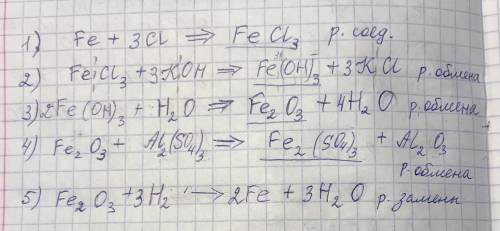 1) Fe + 3Cl ⇒ FeCl₃ р. соед.
2) FeCl₃ + 3KOH ⇒ Fe(OH)₃ + 3KCl р. обмена
3) 2Fe(OH)₃ + H₂O ⇒ Fe₂O₃ + 4H₂O р. обмена
4) Fe₂O₃ + Al₂(SO₄)₃ ⇒ Fe₂(SO₄)₃ + Al₂O₃
р. обмена
5) Fe₂O₃ + 3H₂ → 2Fe + 3H₂O р. замены